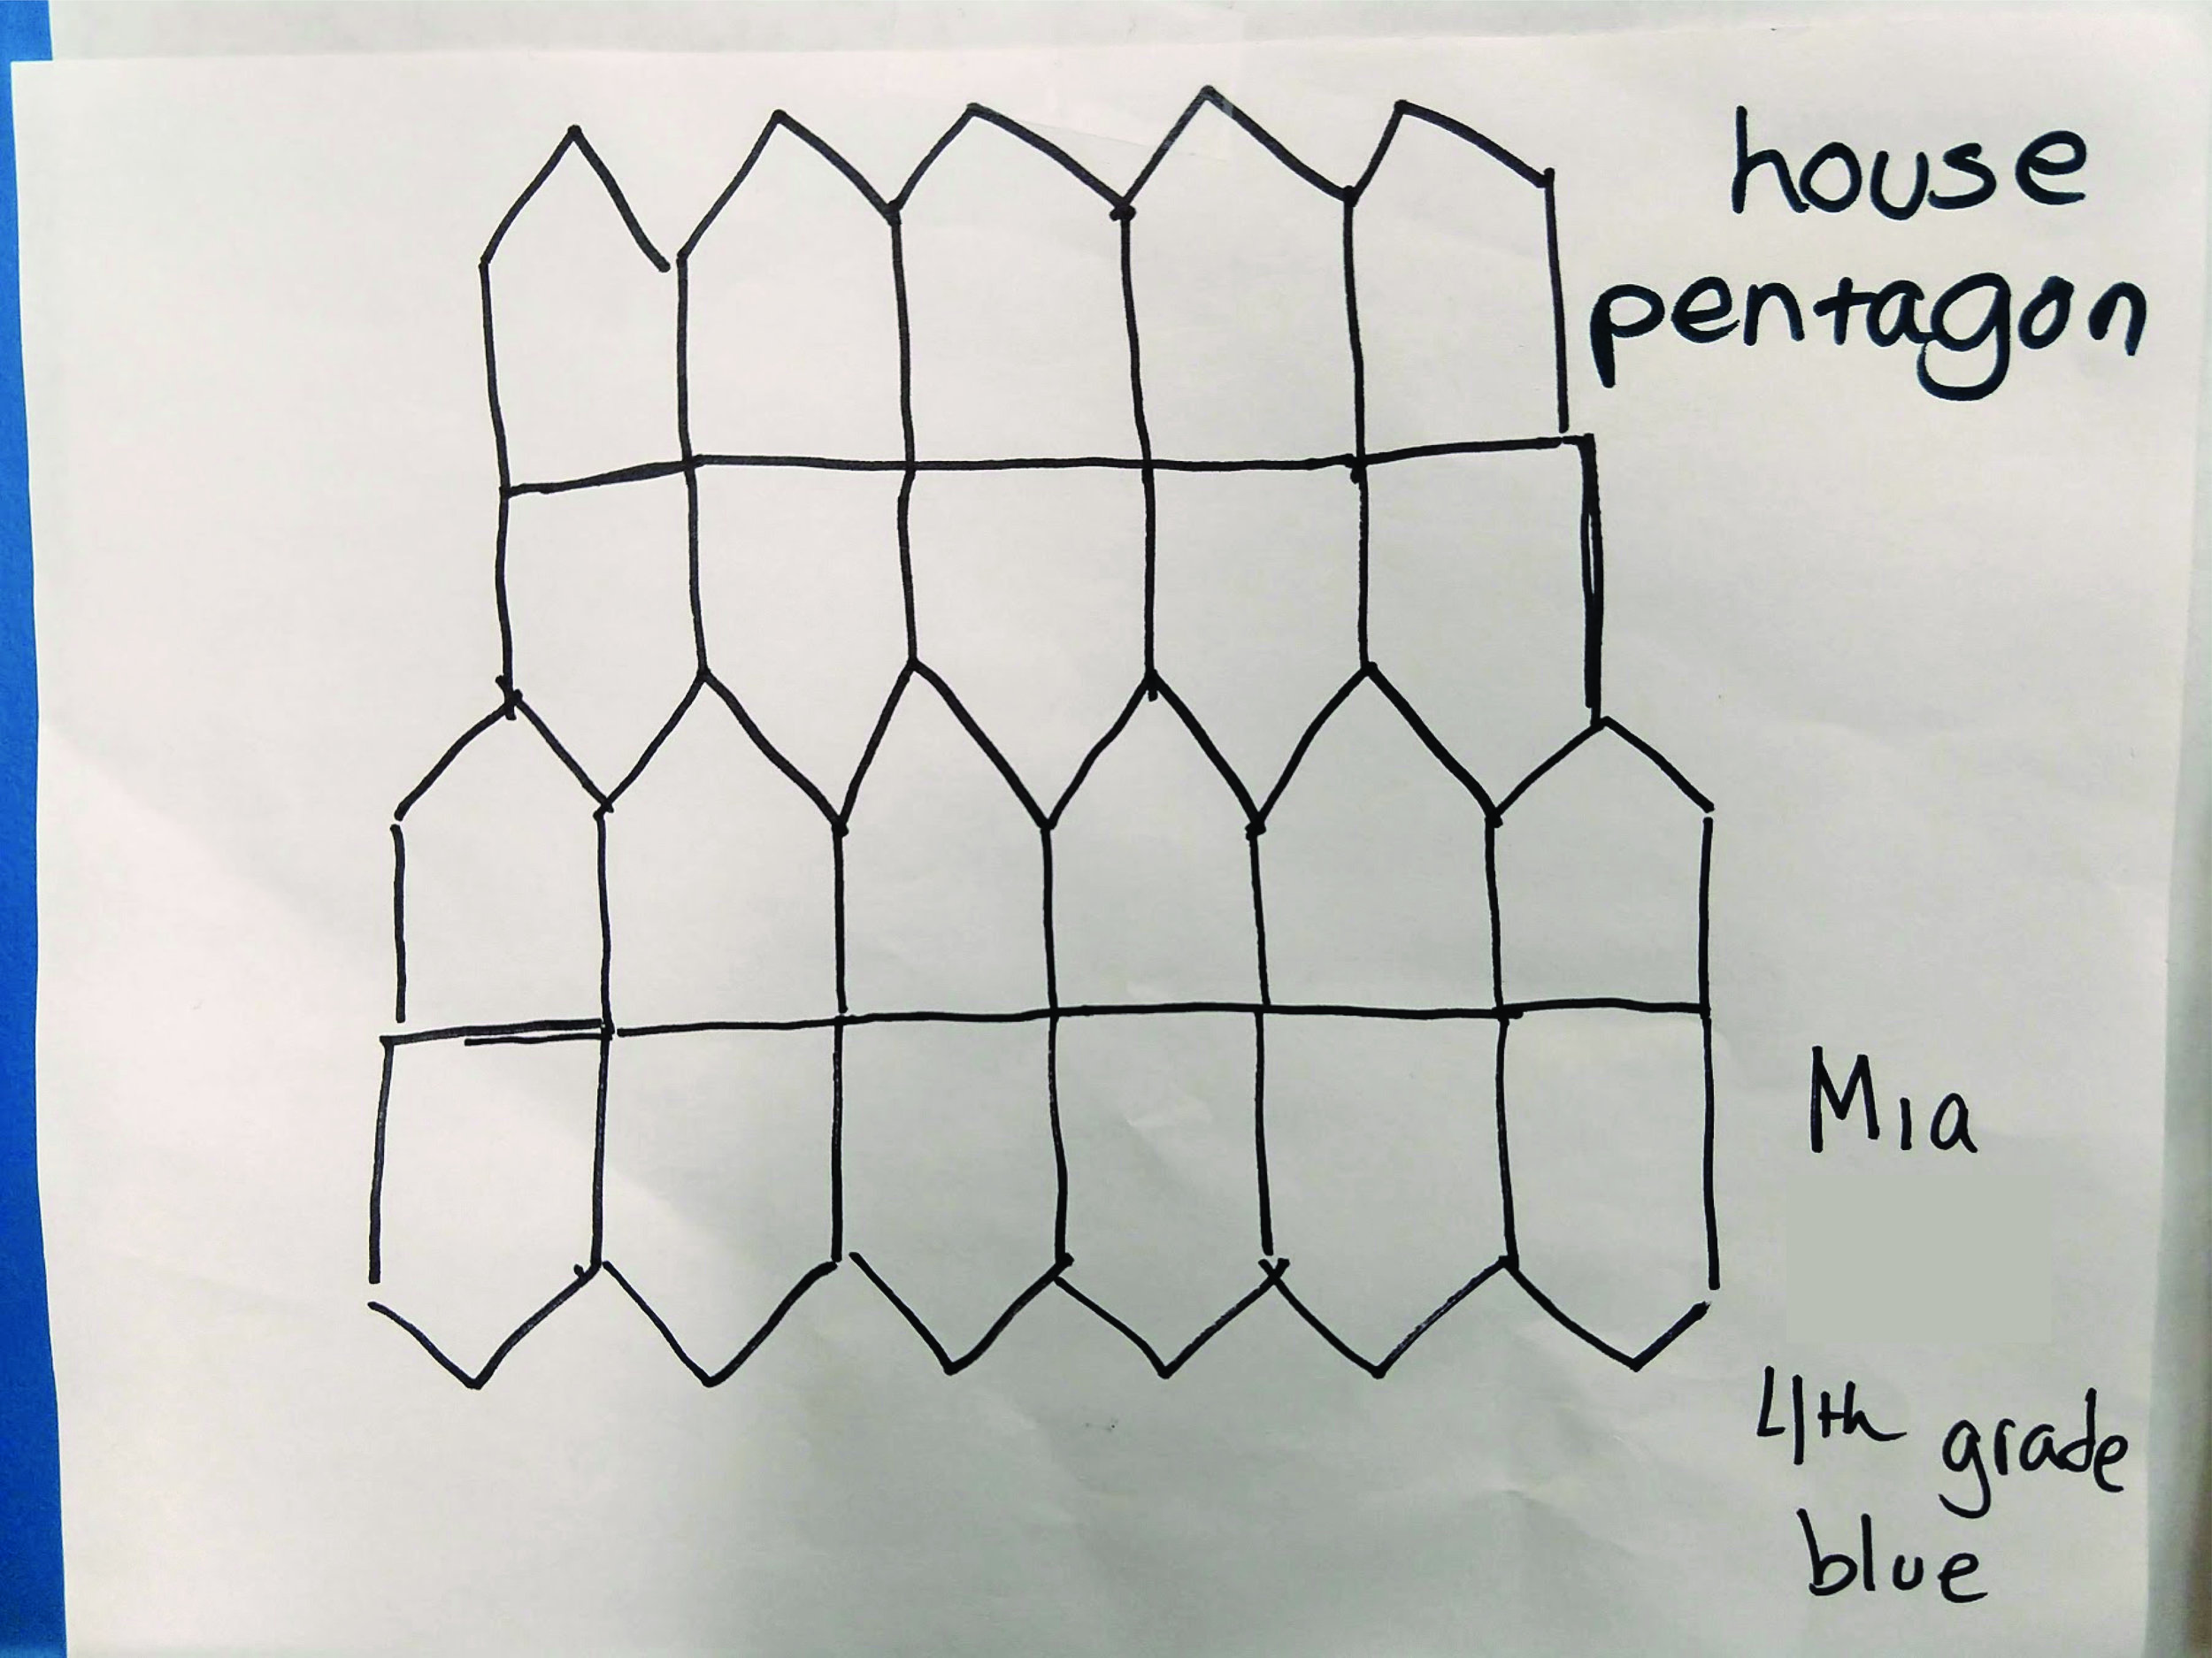 house
pentagon
Mia
4th grade
blue